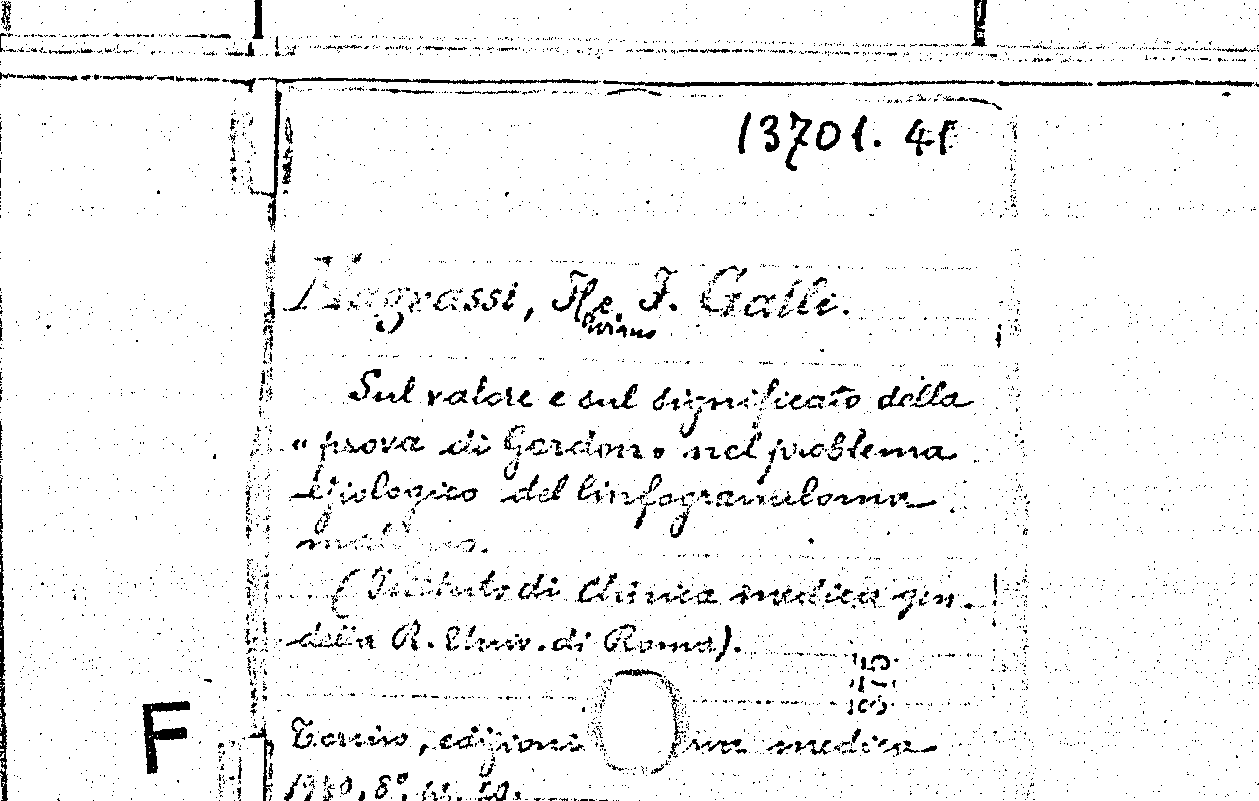 13701. 41
Magrassi, Fl e F. Galli.
Sul valore e sul significato della
"prova di Gordon" nel problema
eziologico del linfogranuloma
maligno.
(Istituto di Clinica medica gen.
della R. Univ. di Roma).
Torino, edizioni medica
F